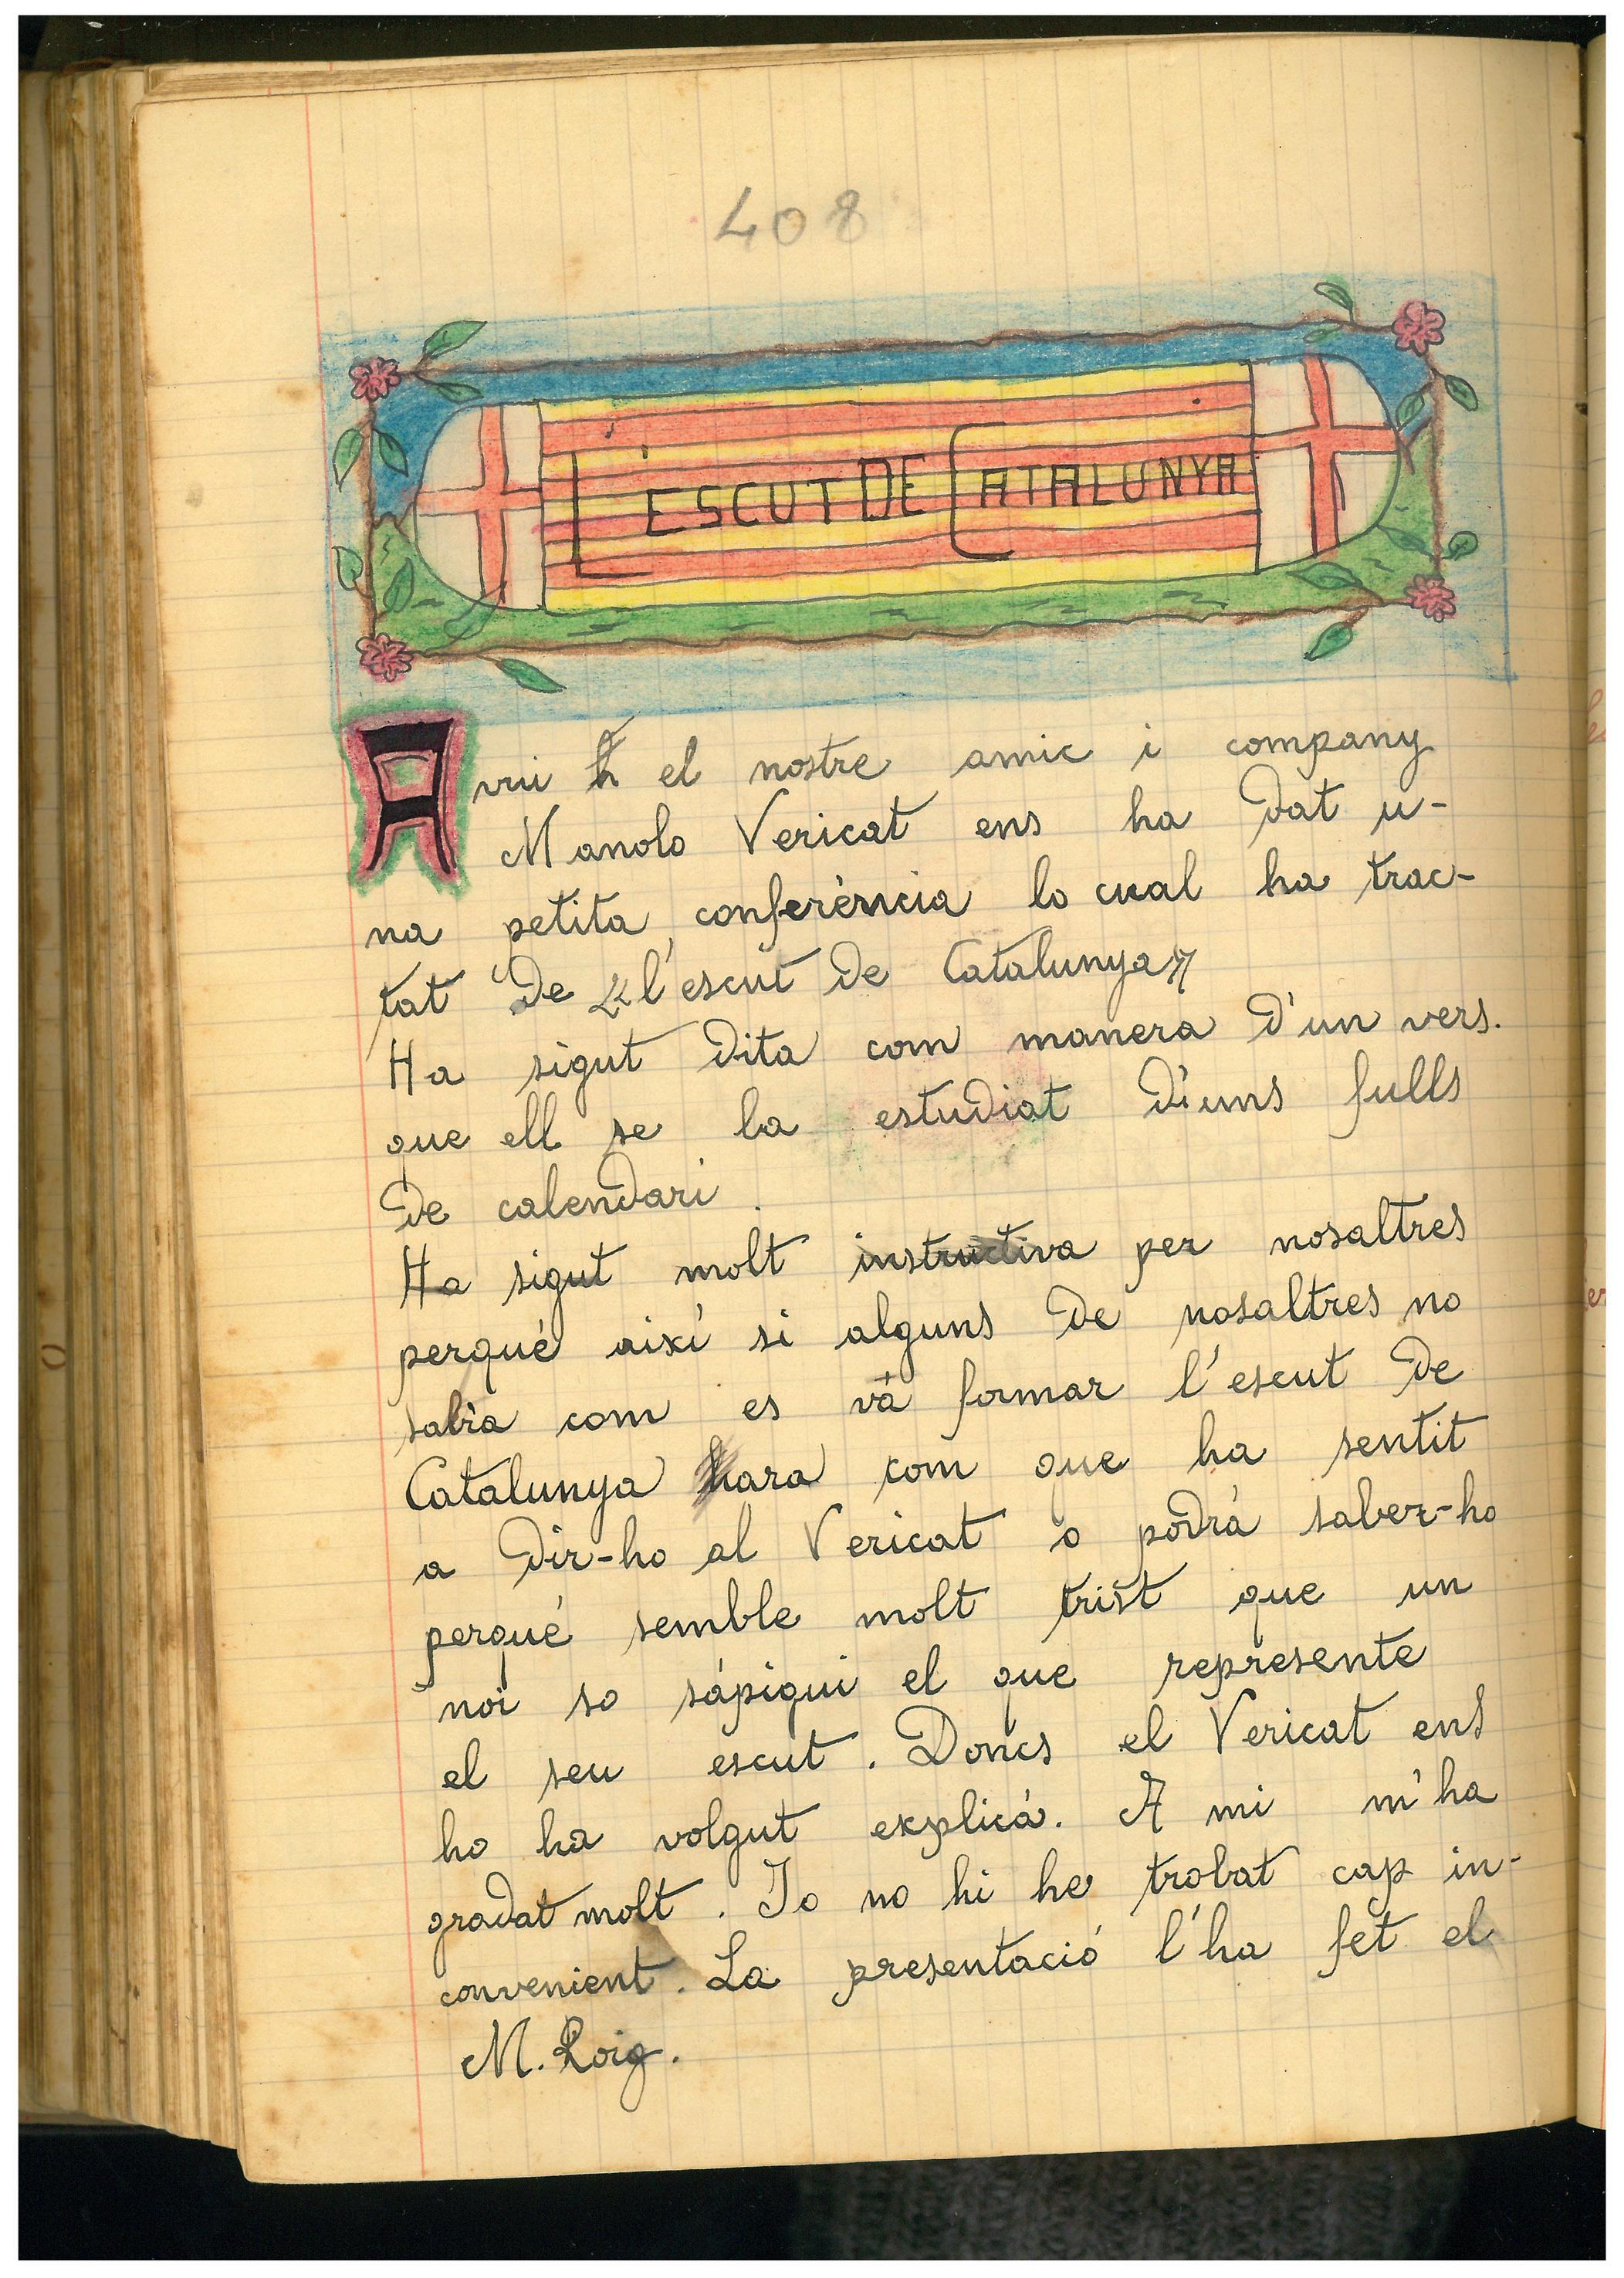 408
L'ESCUT DE CATALUNYA
Avui el nostre amic i company
Manolo Vericat ens ha dat u-
na petita conferència lo cual ha trac-
tat de "l'escut de Catalunya"
Ha sigut dita com manera d'un vers.
que ell se la estudiat d'uns fulls
de calendari.
Ha sigut molt instructiva per nosaltres
perqué aixi si alguns de nosaltres no
sabia com es và formar l'escut de
Catalunya hara com que ha sentit
a dir-ho al Vericat o podrá saber-ho
perqué semble molt trist que un
noi so sápigui el que represente
el seu escut. Doncs el Vericat ens
ho ha volgut explicá. A mi m'ha
gradat molt. Jo no hi he trobat cap in-
convenient. La presentació l'ha fet el
M. Roig.